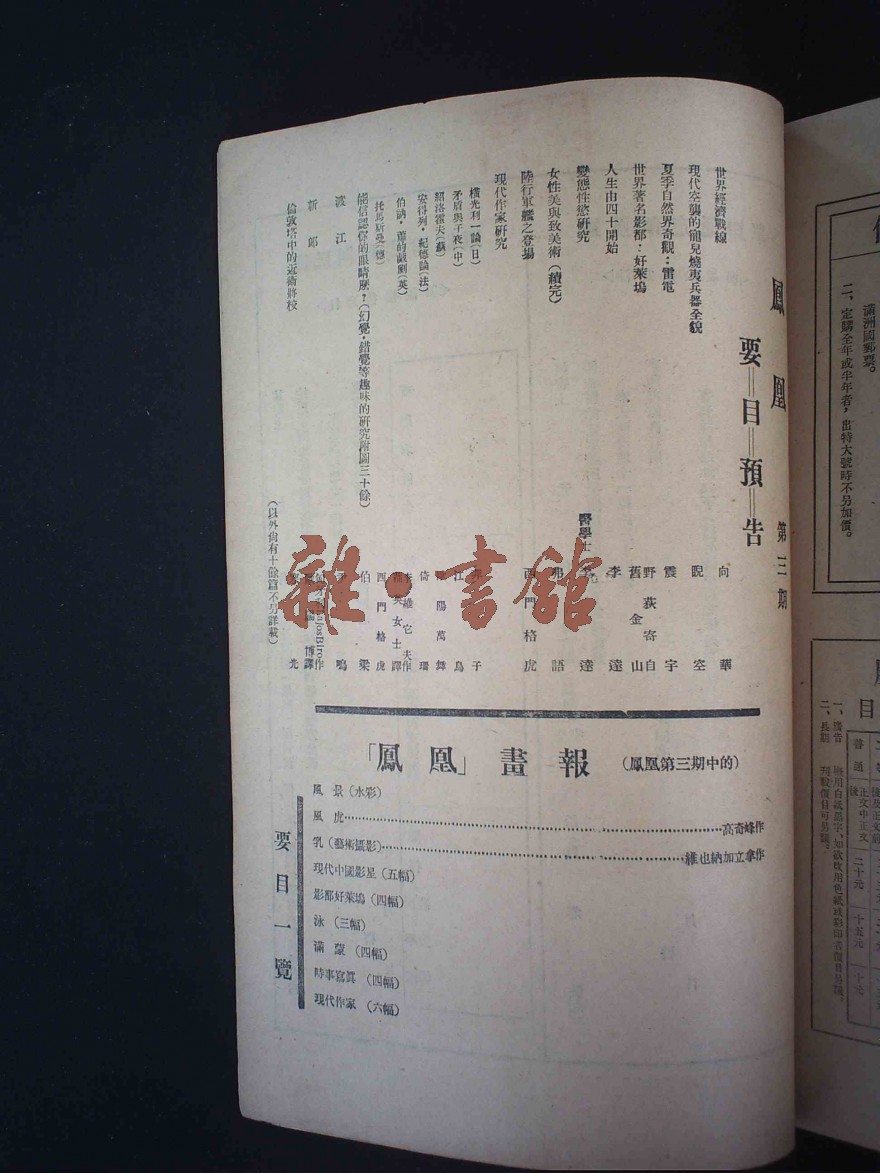 鳳凰 第三期
要目預告
世界經濟戰線 向華
現代空襲的寵兒燒夷兵器全貌 說空
夏季自然界奇觀：雷電 震宇
世界著名影都：好萊塢 野荻寄自舊金山
人生由四十開始 李遠
變態性慾研究 醫學士 達
女性美與致美術（續完） 語
陸行軍艦之登場 西門格虎
現代作家研究
橫光利一論（日） 子
矛盾與子夜（中） 江鳥
紹洛霍夫（蘇） 陽萬舞
安得列，紀德論（法） 倚珊
伯訥，蕭的戲劇（英） 維它夫作 英女士譯
托馬斯曼（德） 西門格虎
能信認你的眼睛麽？（幻覺，錯覺等趣味的研究附圖三十餘） 伯梁
渡江 鳴
新郎 LajosBiro作 博譯
倫敦塔中的近衛將校 光
（以外尙有十餘篇不另詳載）
「鳳凰」畫報（鳳凰第三期中的）
要目一覽
風景（水彩）
風虎……高奇峰作
乳（藝術攝影）……維也納加立拿作
現代中國影星（五幅）
影都好萊塢（四幅）
泳（三幅）
滿蒙（四幅）
時事寫眞（四幅）
現代作家（六幅）
滿洲國郵票。
二、定購全年或半年者，出特大號時不另加價。
目
普通
正文中正文後
二十元
十五元
十元
雜·書館